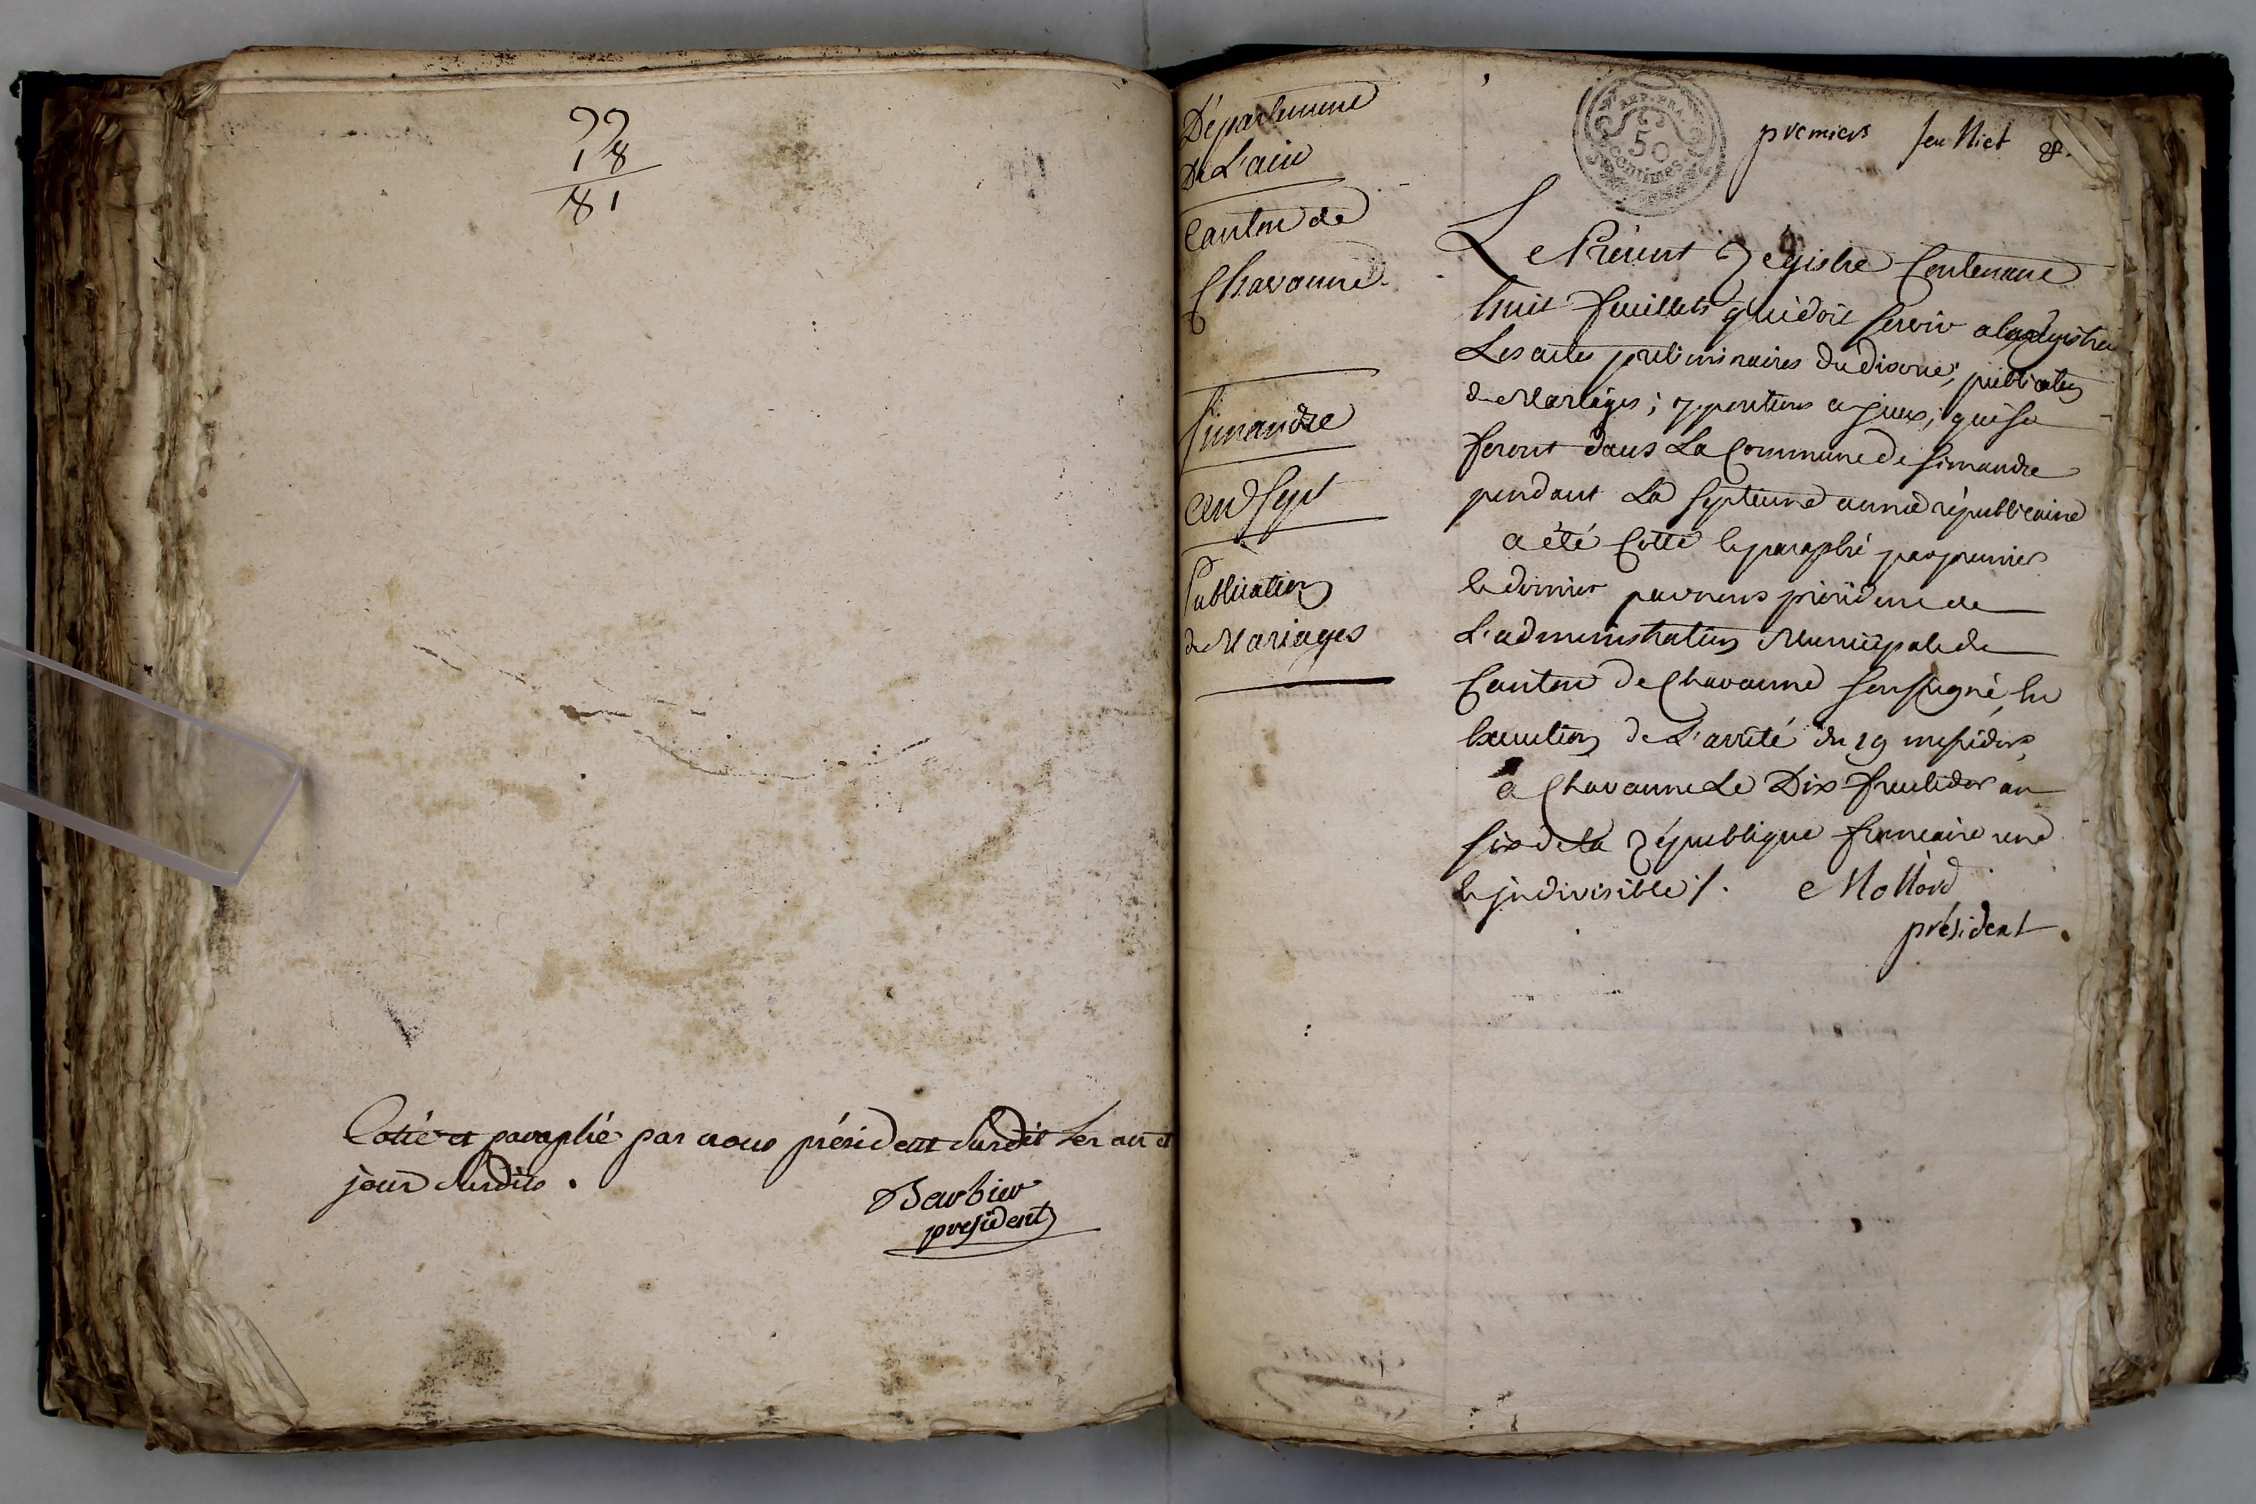 99
18
81
Cotté et paraphé par nous président susdit les an et
jour susdits.
Barbier
president
Département
De L'ain
Canton de
Chavanne
Simandre
an Sept
Publication
de Mariages
REP. FRA.
50
centimes
premiers feuillet 8.
Le Présent Régistre Contenant
huit feuillets qui doit servir a
Les actes préliminaires du divorce; publication
de Mariages; oppositions a jceux, qui se
feront dans La Commune de Simandre
pendant La septieme année républicaine
a été Cotté & paraphé par premier
& dernier par nous président de
L'administration Municipale du
Canton de Chavanne soussigné, en
Execution de L'arrêté du 19 messidor
a Chavanne Le Dix fructidor an
six de la République francaise une
& jndivisible /. Mollard
président